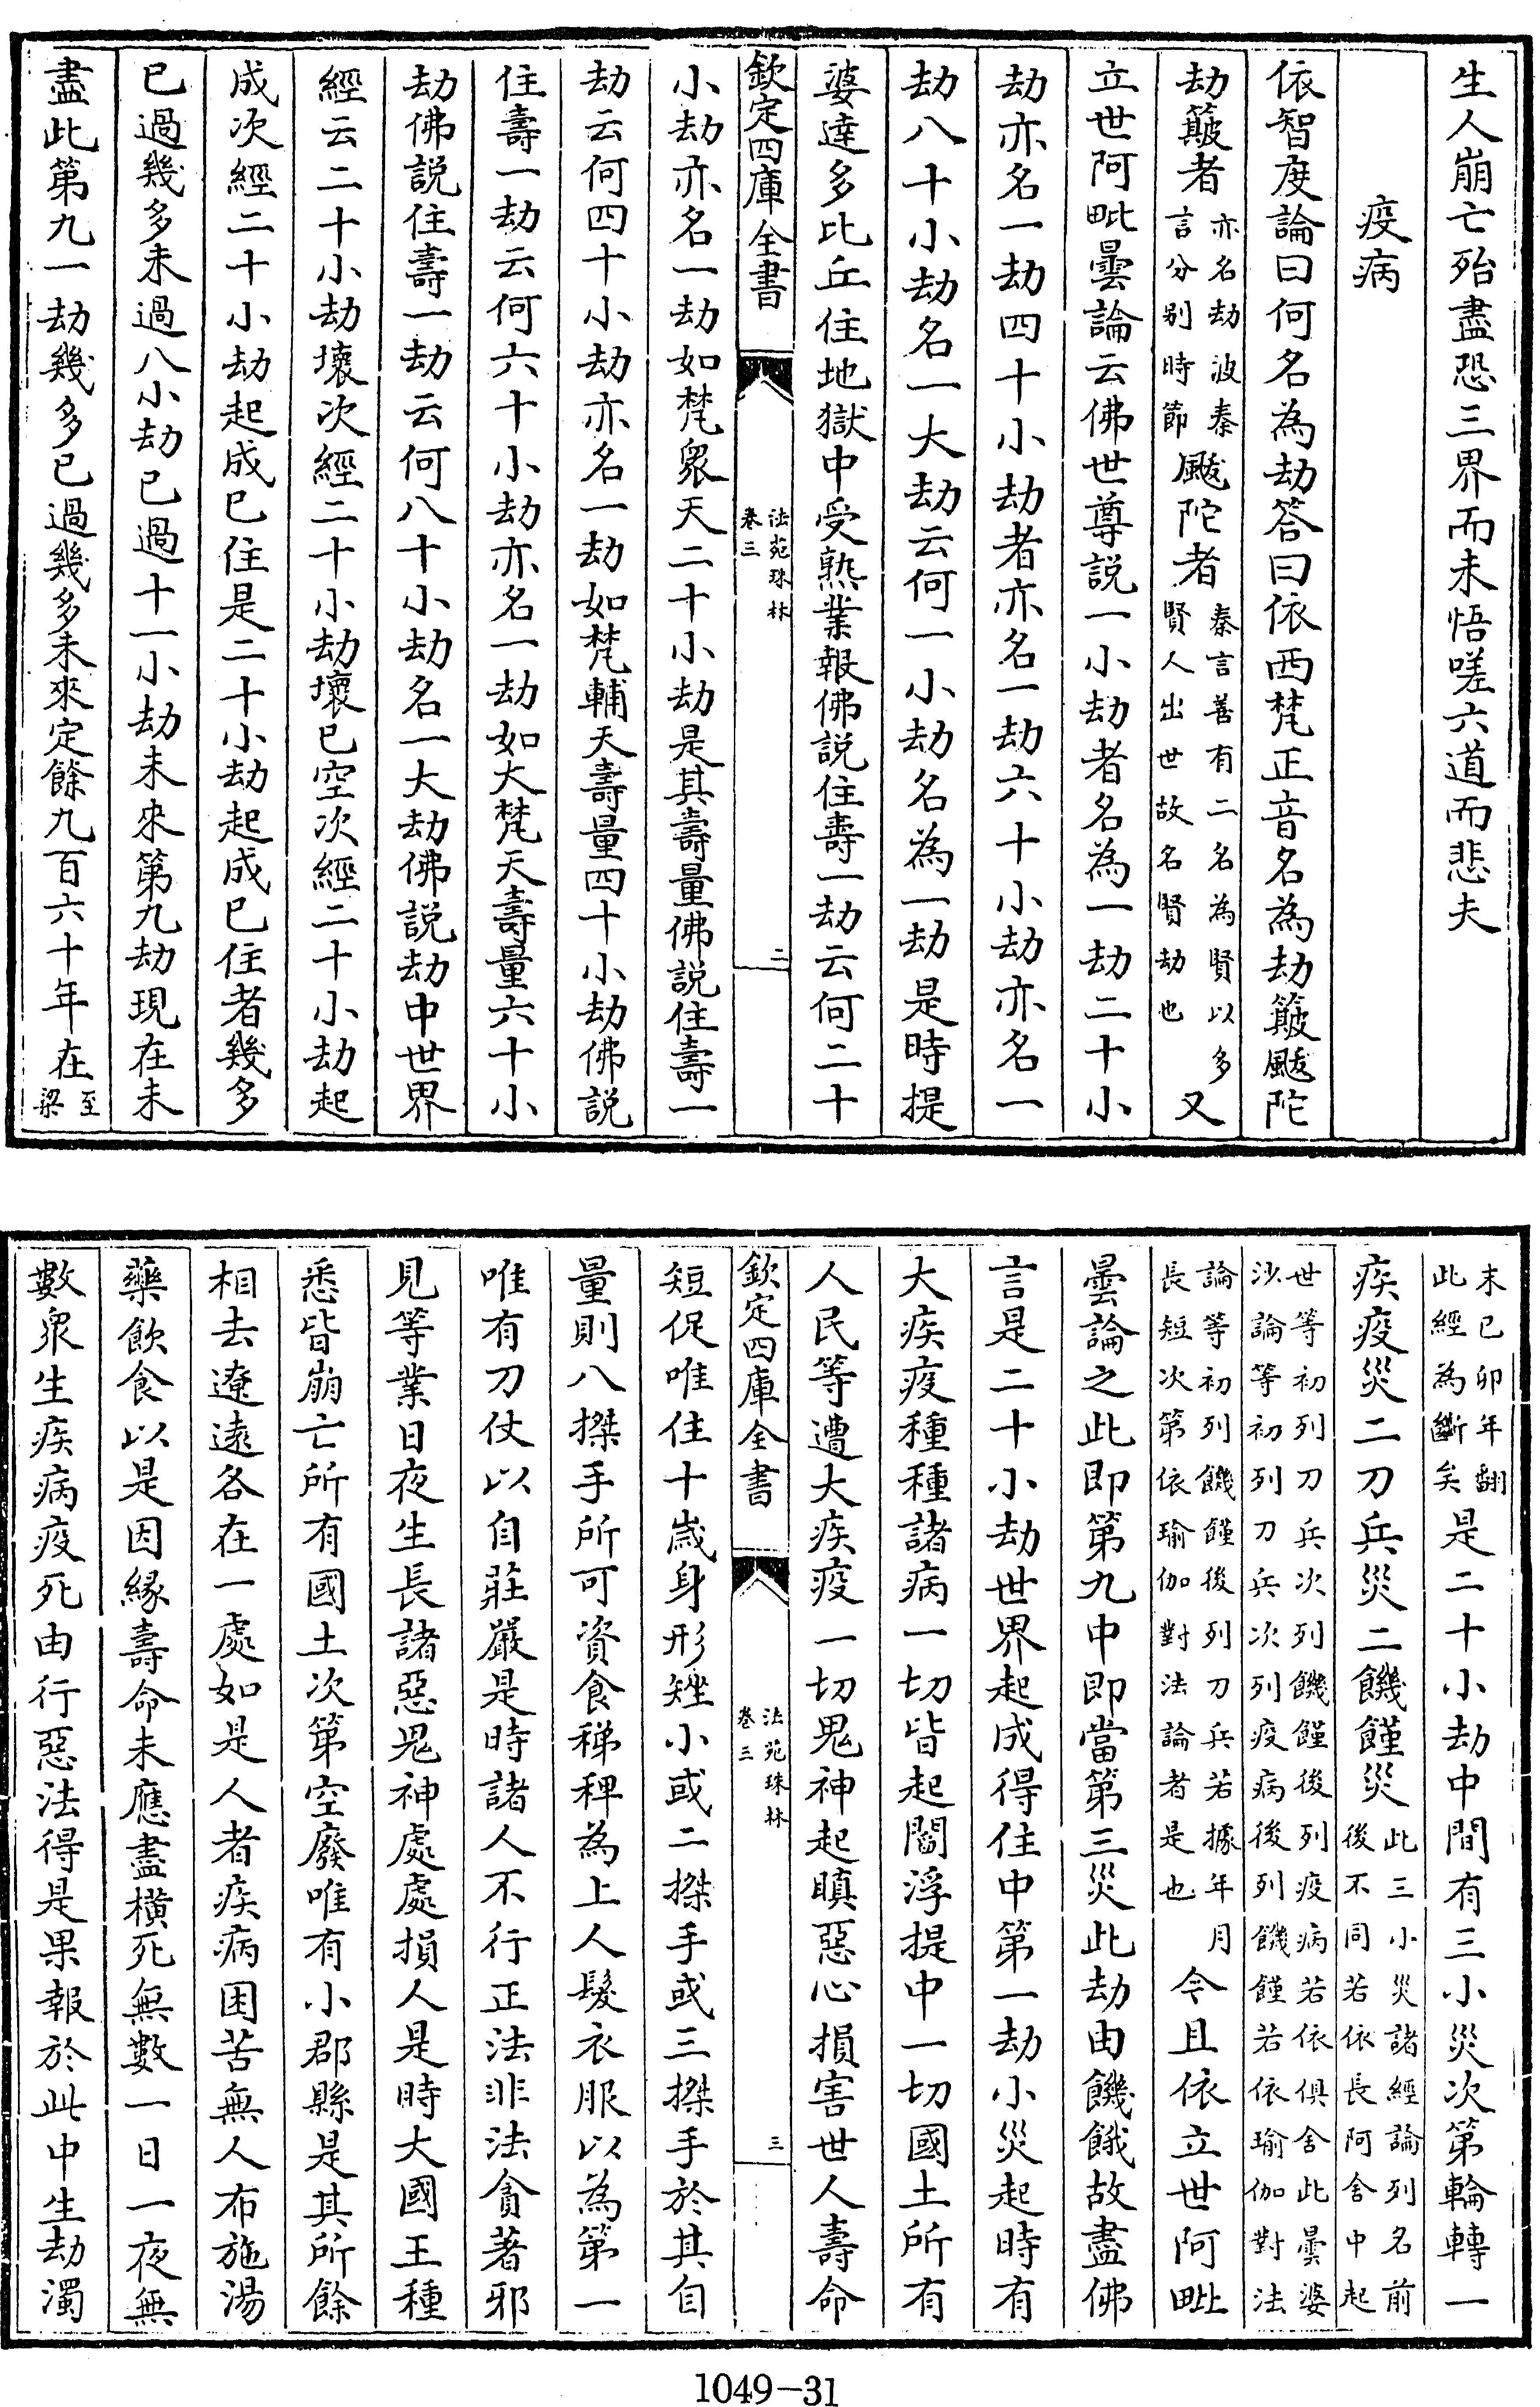 生人崩亡殆盡恐三界而未悟嗟六道而悲夫
疫病
依智度論曰何名為劫答曰依西梵正音名為劫簸颰陀
劫簸者亦名劫波秦言分别時節颰陀者秦言善有二名為賢以多賢人出世故名賢劫也又
立世阿毗曇論云佛世尊説一小劫者名為一劫二十小
劫亦名一劫四十小劫者亦名一劫六十小劫亦名一
劫八十小劫名一大劫云何一小劫名為一劫是時提
婆達多比丘住地獄中受熟業報佛説住壽一劫云何二十
欽定四庫全書
法苑珠林
卷三
二
小劫亦名一劫如梵衆天二十小劫是其壽量佛説住壽一
劫云何四十小劫亦名一劫如梵輔天壽量四十小劫佛説
住壽一劫云何六十小劫亦名一劫如大梵天壽量六十小
劫佛説住壽一劫云何八十小劫名一大劫佛説劫中世界
經云二十小劫壞次經二十小劫壞已空次經二十小劫起
成次經二十小劫起成已住是二十小劫起成已住者幾多
已過幾多未過八小劫已過十一小劫未來第九劫現在未
盡此第九一劫幾多已過幾多未來定餘九百六十年在至梁
末已卯年翻此經為斷矣是二十小劫中間有三小災次第輪轉一
疾疫災二刀兵災二饑饉災此三小災諸經論列名前後不同若依長阿含中起
世等初列刀兵次列饑饉後列疫病若依俱舍此曇婆沙論等初列刀兵次列疫病後列饑饉若依瑜伽對法
論等初列饑饉後列刀兵若據年月長短次第依瑜伽對法論者是也今且依立世阿毗
曇論之此即第九中即當第三災此劫由饑餓故盡佛
言是二十小劫世界起成得住中第一劫小災起時有
大疾疫種種諸病一切皆起閻浮提中一切國土所有
人民等遭大疾疫一切鬼神起瞋惡心損害世人壽命
欽定四庫全書
法苑珠林
卷三
三
短促唯住十歲身形矬小或二搩手或三搩手於其自
量則八搩手所可資食稊稗為上人髮衣服以為第一
唯有刀仗以自莊嚴是時諸人不行正法非法貪著邪
見等業日夜生長諸惡鬼神處處損人是時大國王種
悉皆崩亡所有國土次第空廢唯有小郡縣是其所餘
相去遼遠各在一處如是人者疾病困苦無人布施湯
藥飲食以是因緣壽命未應盡橫死無數一日一夜無
數衆生疾病疫死由行惡法得是果報於此中生劫濁
1049-31